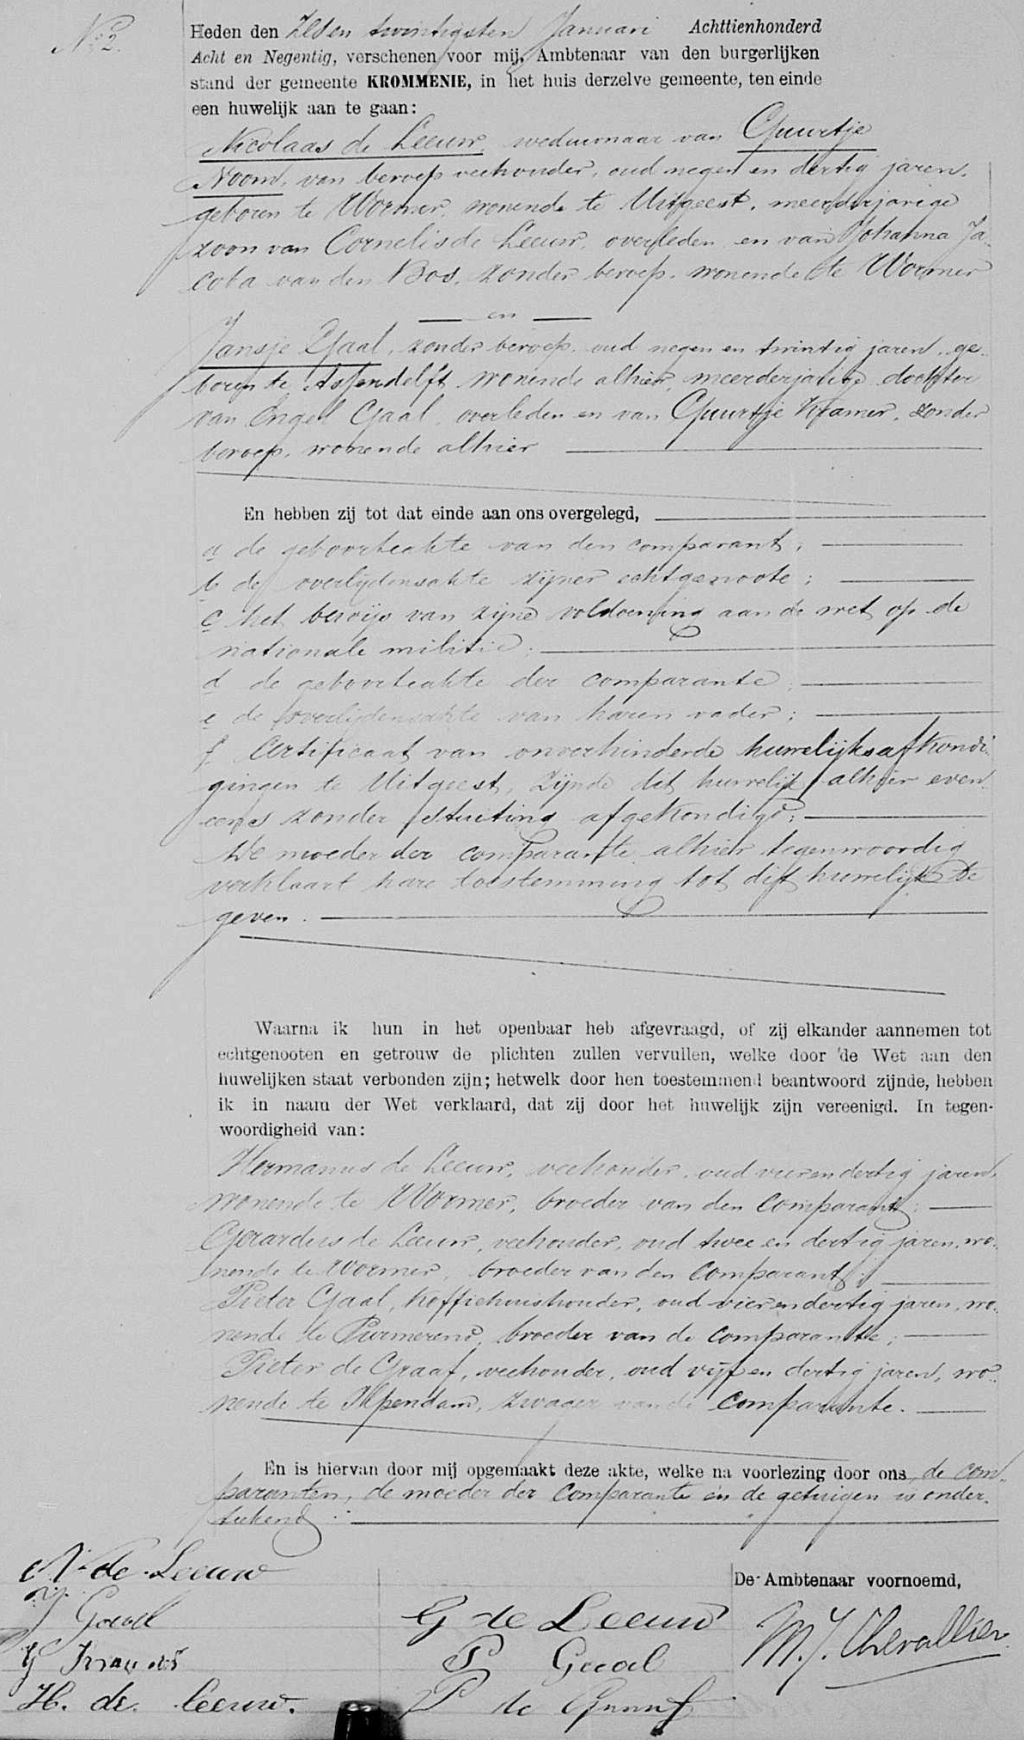 No 2.
Heden den zes en twintigsten Januari Achttienhonderd
Acht en Negentig, verschenen voor mij, Ambtenaar van den burgerlijken
stand der gemeente KROMMENIE, in het huis derzelve gemeente, ten einde
een huwelijk aan te gaan:
Nicolaas de Leeuw, weduwnaar van Guurtje
Noom, van beroep veehouder, oud negen en dertig jaren,
geboren te Wormer, wonende te Uitgeest, meerderjarige
zoon van Cornelis de Leeuw, overleden en van Johanna Ja-
coba van den Bos, zonder beroep, wonende te Wormer
en
Jansje Gaal, zonder beroep, oud negen en twintig jaren, ge-
boren te Assendelft, wonende alhier, meerderjarige dochter
van Engel Gaal, overleden en van Guurtje Kramer, zonder
beroep, wonende alhier
En hebben zij tot dat einde aan ons overgelegd,
a de geboorteakte van den comparant;
b de overlijdensakte zijner echtgenoote;
c het bewijs van zijne voldoening aan de wet op de
nationale militie;
d de geboorteakte der comparante;
e de overlijdensakte van haren vader;
f Certificaat van onverhinderde huwelijksafkondi-
gingen te Uitgeest, zijnde dit huwelijk alhier even-
eens zonder stuiting afgekondigd;
De moeder der comparante alhier tegenwoordig
verklaart hare toestemming tot dit huwelijk te
geven.
Waarna ik hun in het openbaar heb afgevraagd, of zij elkander aannemen tot
echtgenooten en getrouw de plichten zullen vervullen, welke door de Wet aan den
huwelijken staat verbonden zijn; hetwelk door hen toestemmend beantwoord zijnde, hebben
ik in naam der Wet verklaard, dat zij door het huwelijk zijn vereenigd. In tegen-
woordigheid van:
Hermanus de Leeuw, veehouder, oud vier en dertig jaren,
wonende te Wormer, broeder van den Comparant;
Gerardus de Leeuw, veehouder, oud twee en dertig jaren, wo-
nende te Wormer, broeder van den Comparant;
Pieter Gaal, koffiehuishouder, oud vier en dertig jaren, wo-
nende te Purmerend, broeder van de Comparante;
Pieter de Graaf, veehouder, oud vijf en dertig jaren, wo-
nende te Ilpendam, zwager van de Comparante.
En is hiervan door mij opgemaakt deze akte, welke na voorlezing door ons, de com-
paranten, de moeder der Comparante en de getuigen is onder-
teekend.
De Ambtenaar voornoemd,
N. de Leeuw
J Gaal
G Kramer
H. de Leeuw.
G de Leeuw
P Gaal
P de Graaf
M. J. Chevallier